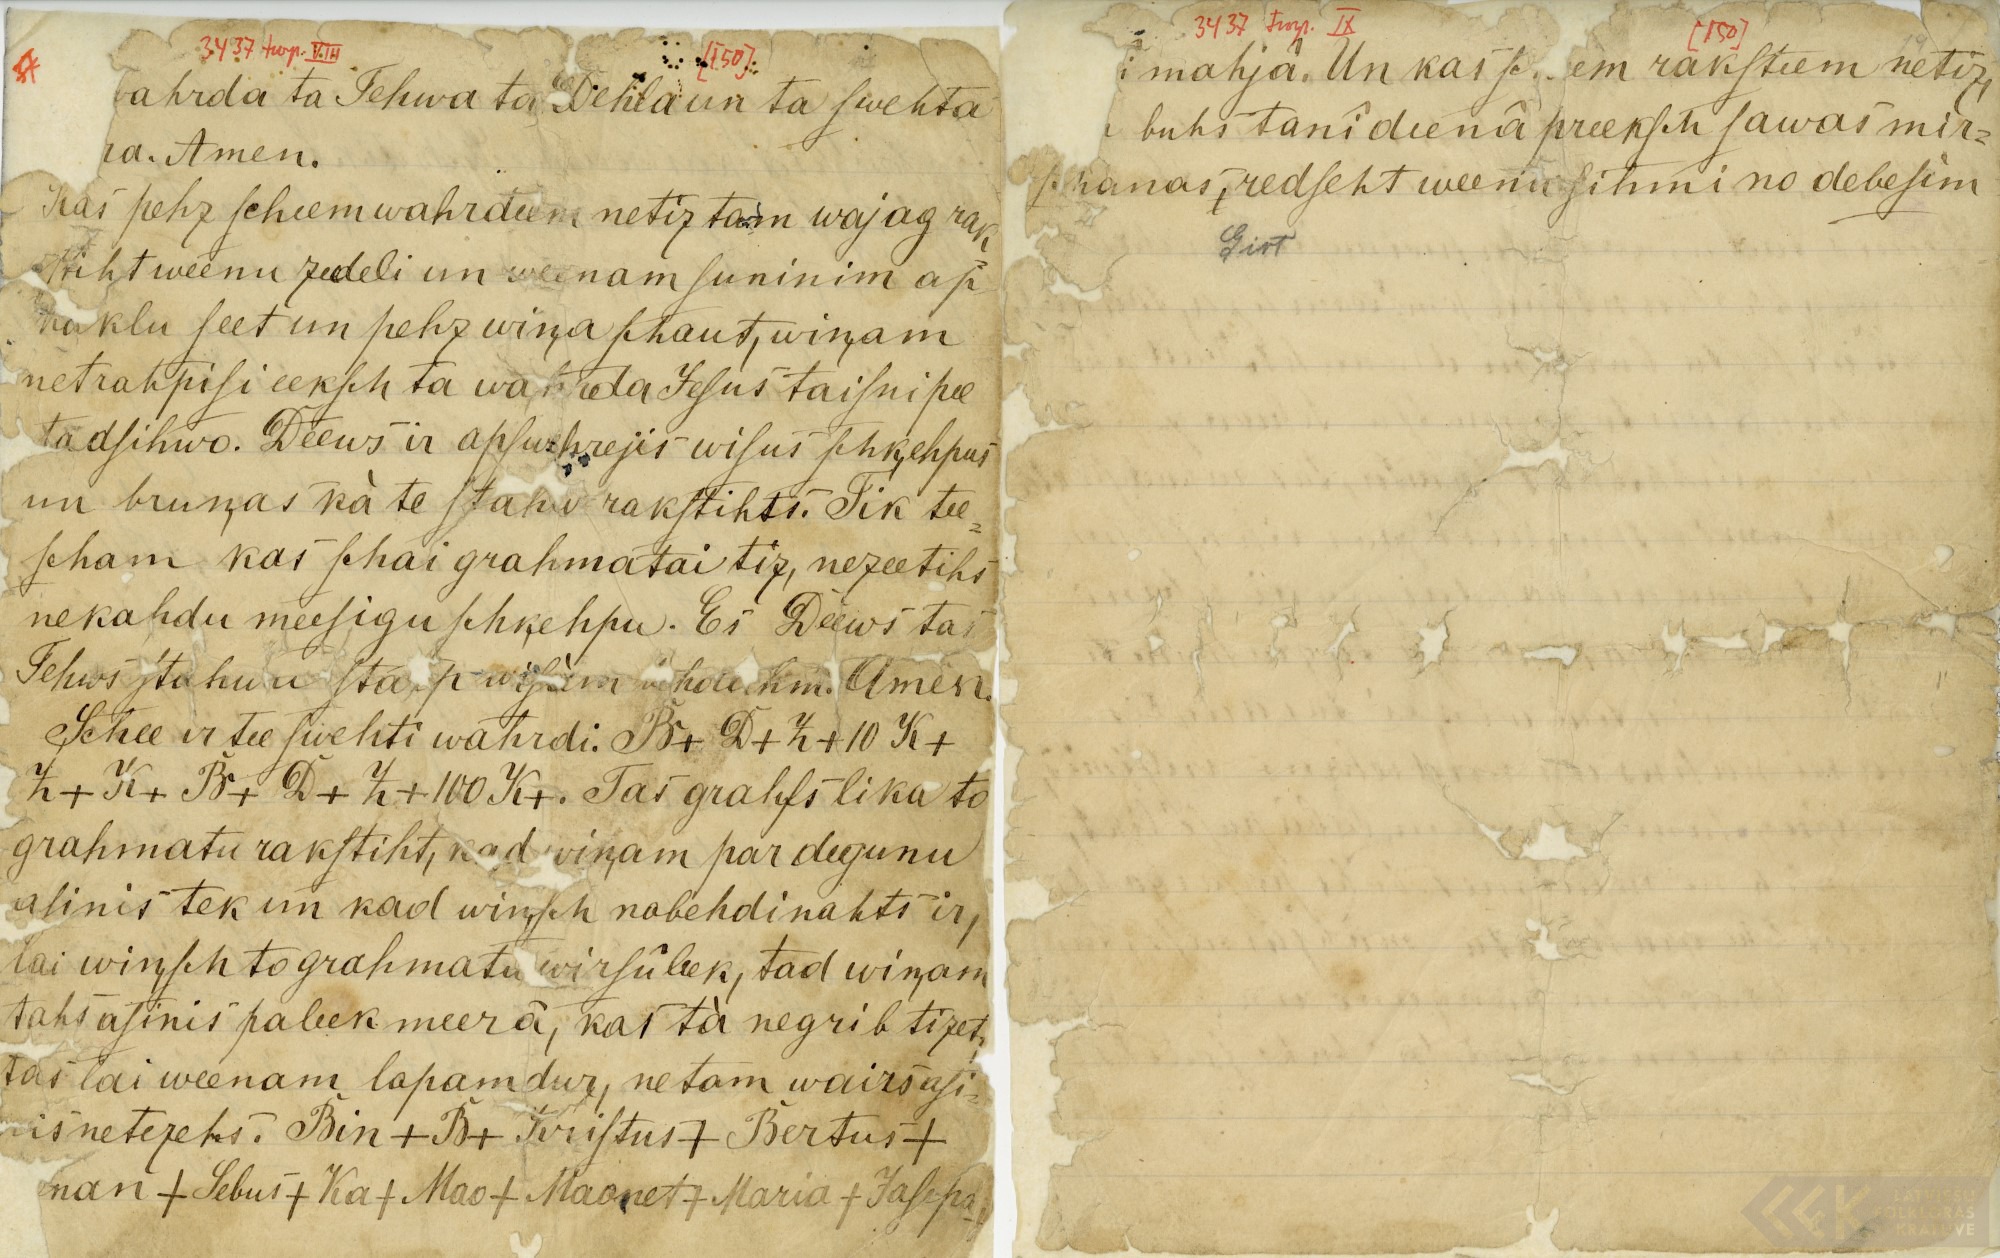 3437 turp. VIII [150]
ahrda ta Tehwa ta Dehla un ta ſwehta
ra. Amen.
Kas pehz ſcheem wahrdeem netiz tam wajag rak=
ſtiht weenu zedeli un weenam ſuninim ap
kaklu ſeet un pehz wiņa ſchaut, wiņam
netrahpiſi eekſch ta wahrda Jeſus taiſni pee
ta dſihwo. Deews ir apſwehrejis wiſus ſchķehpus
un bruņas kà te ſtahw rakſtihts. Tik tee=
ſcham kas ſchai grahmatai tiz, nezeetihs
nekahdu meeſigu ſchķehpu. Es Deews tas
Tehws ſtahwu ſtarp Amen.
Schee ir tee ſwehti wahrdi. B+ D+ Z+ 10 K+
Z+ K+ B+ D+ Z+ 100 K+. Tas grahfs lika to
grahmatu rakſtiht, kad wiņam par degunu
aſinis tek un kad wiņſch nobehdinahts ir,
lai wiņſch to grahmatu wirſû leek, tad wiņam
tahs aſinis paleek meerâ, kas tà negrib tizet,
tas lai weenam lopam dur, ne tam wairs aſi=
nis netezehs. Bin + B+ Kriſtus + Bertus +
nan + Sebus + Ka + Mao + Maonet + Maria + Jaſepa
3437 turp. IX [150]
i mahjâ. Un kas ſ em rakſteem netiz,
buhs tanî deenâ preekſch ſawas mir=
ſchanas, redſeht weenu ſihmi no debeſim
Girt
LATVIEŠU
FOLKLORAS
KRĀTUVE